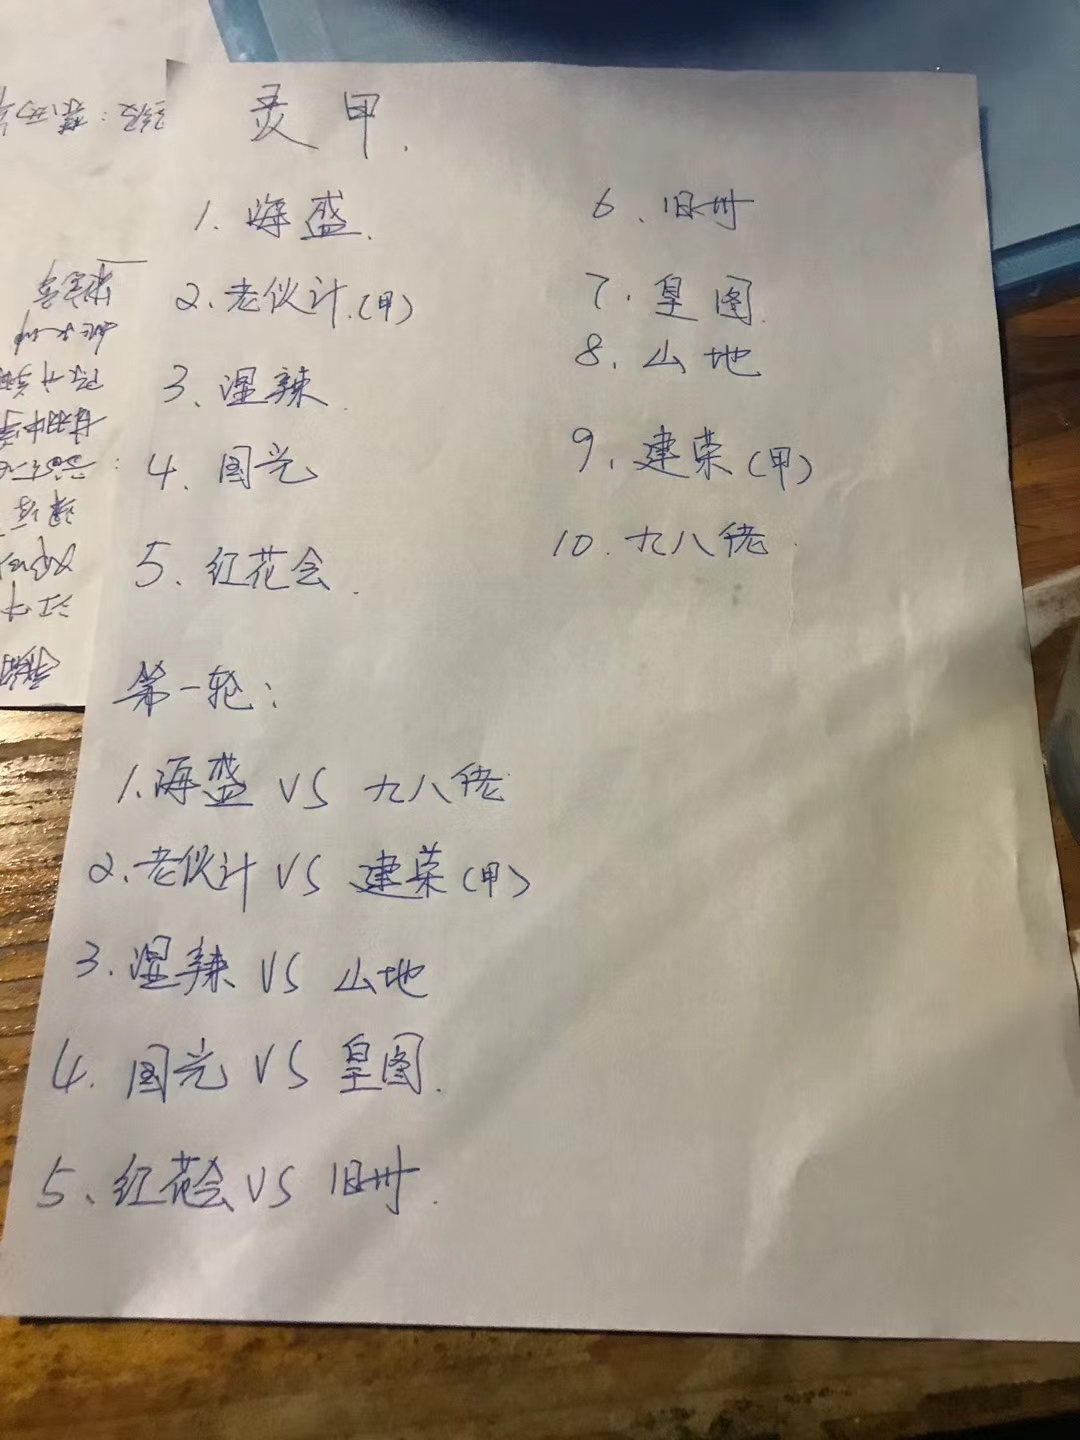 灵甲.
1. 海盛.
2. 老伙计.(甲)
3、湿辣.
4. 国光
5、红花会.
6、旧州
7. 皇图.
8. 山地
9. 建荣(甲)
10. 九八佬.
第一轮:
1. 海盛 VS 九八佬.
2、老伙计 VS 建荣(甲)
3. 湿辣 VS 山地
4. 国光 VS 皇图.
5、红花会 VS 旧州.